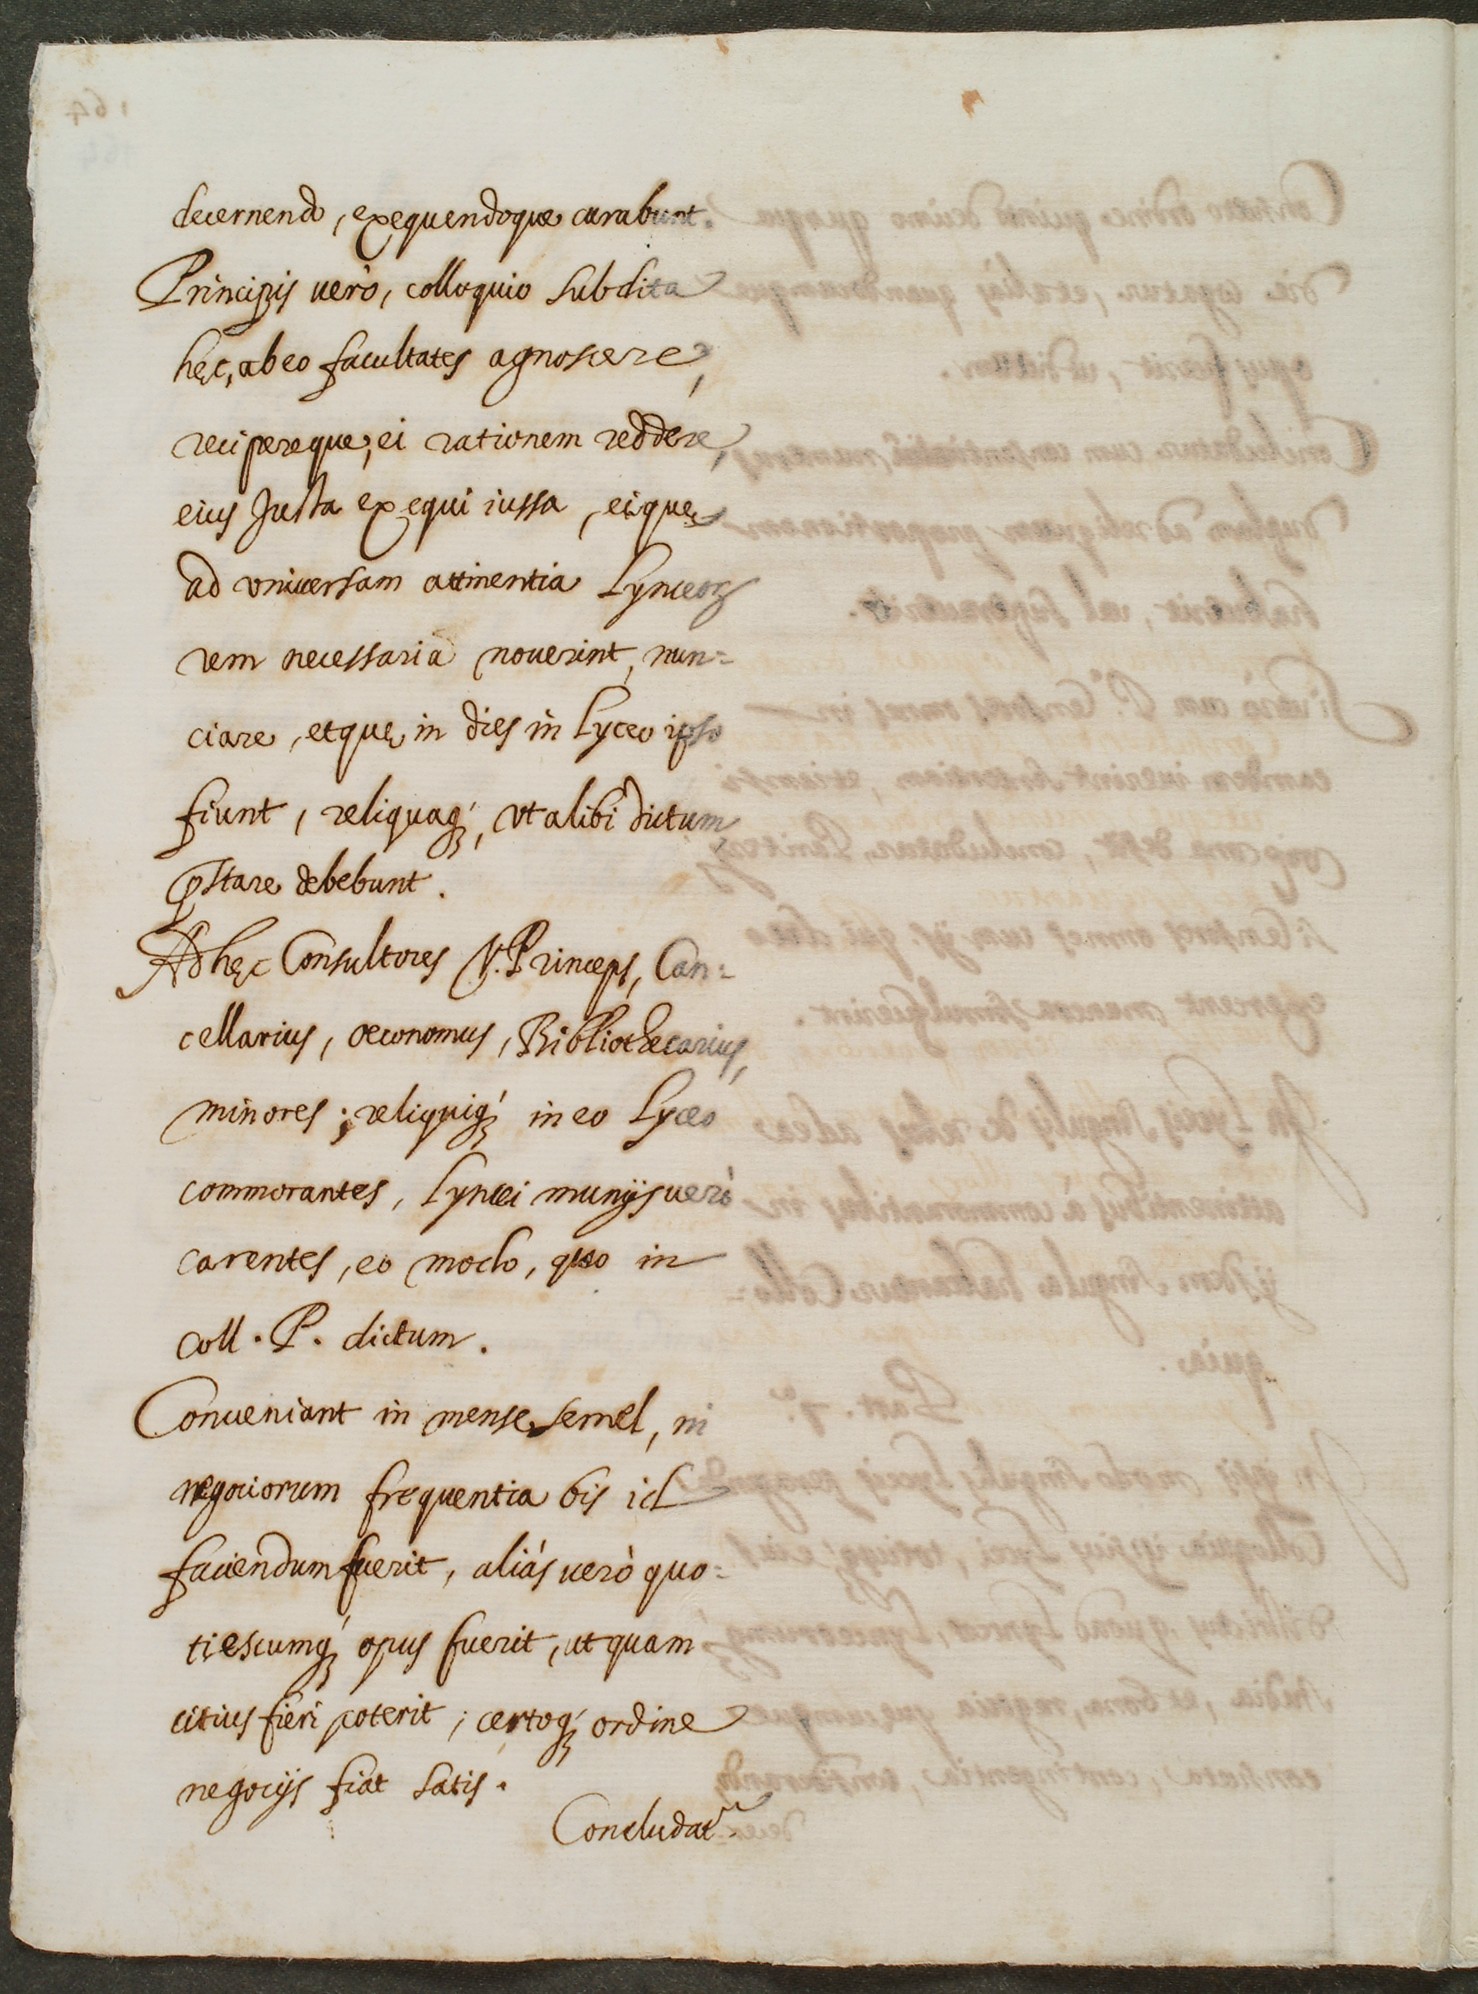 decernendo, exequendoque curabunt.
Principis uerò, colloquio subdita
hęc, ab eo facultates agnoscere,
recipereque, ei rationem reddere,
eius Justa exequi iussa, eique
ad vniuersam attinentia Lynceoꝝ
rem necessaria nouerint, nun=
ciare, etquę in dies in Lyceo ipso
fiunt, reliquaq́ꝫ, vt alibi dictum
p̄stare debebunt.
Ad hęc Consultores V. Princeps, Can=
cellarius, oeconomus, Bibliothecarius,
minores; reliquiq́ꝫ in eo Lyceo
commorantes, Lyncei munijs uerò
carentes, eo modo, quo in
coll. P. dictum.
Conueniant in mense semel, ni
negociorum frequentia bis id
faciendum fuerit, aliàs uerò quo=
tiescumq́ꝫ opus fuerit, ut quam
citius fieri poterit; certoq́ꝫ ordine
negocijs fiat satis.
Concludat.ʳ